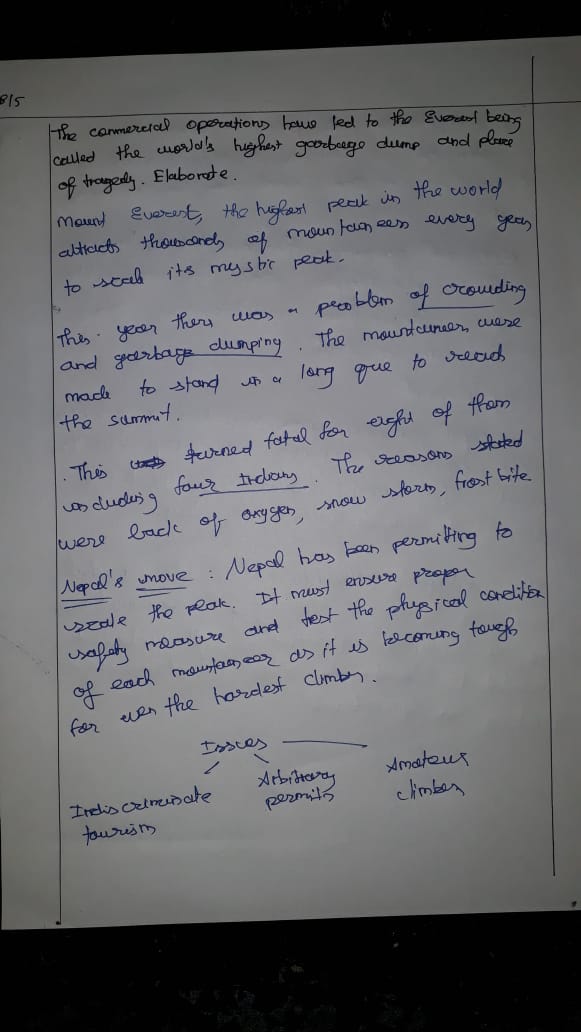 8/5
The commercial operations have led to the Everest being
called the world's highest goarbage dump and place
of tragedy. Elaborate.
Mount Everest, the highest peak in the world
attracts thousands of mountaineers every year,
to scale its mystic peak.
This year there was a problem of crowding
and garbage dumping. The mountaineers were
made to stand in a long que to reach
the summit.
This turned fatal for eight of them
including four Indians. The reasons stated
were lack of oxygen, snow storm, frost bite
Nepal's move : Nepal has been permitting to
scale the peak. It must ensure proper
safety measure and test the physical condition
of each mountaineer as it is becoming tough
for even the hardest climber.
Issues
Indiscriminate tourism
Arbitrary permits
Amateur climber